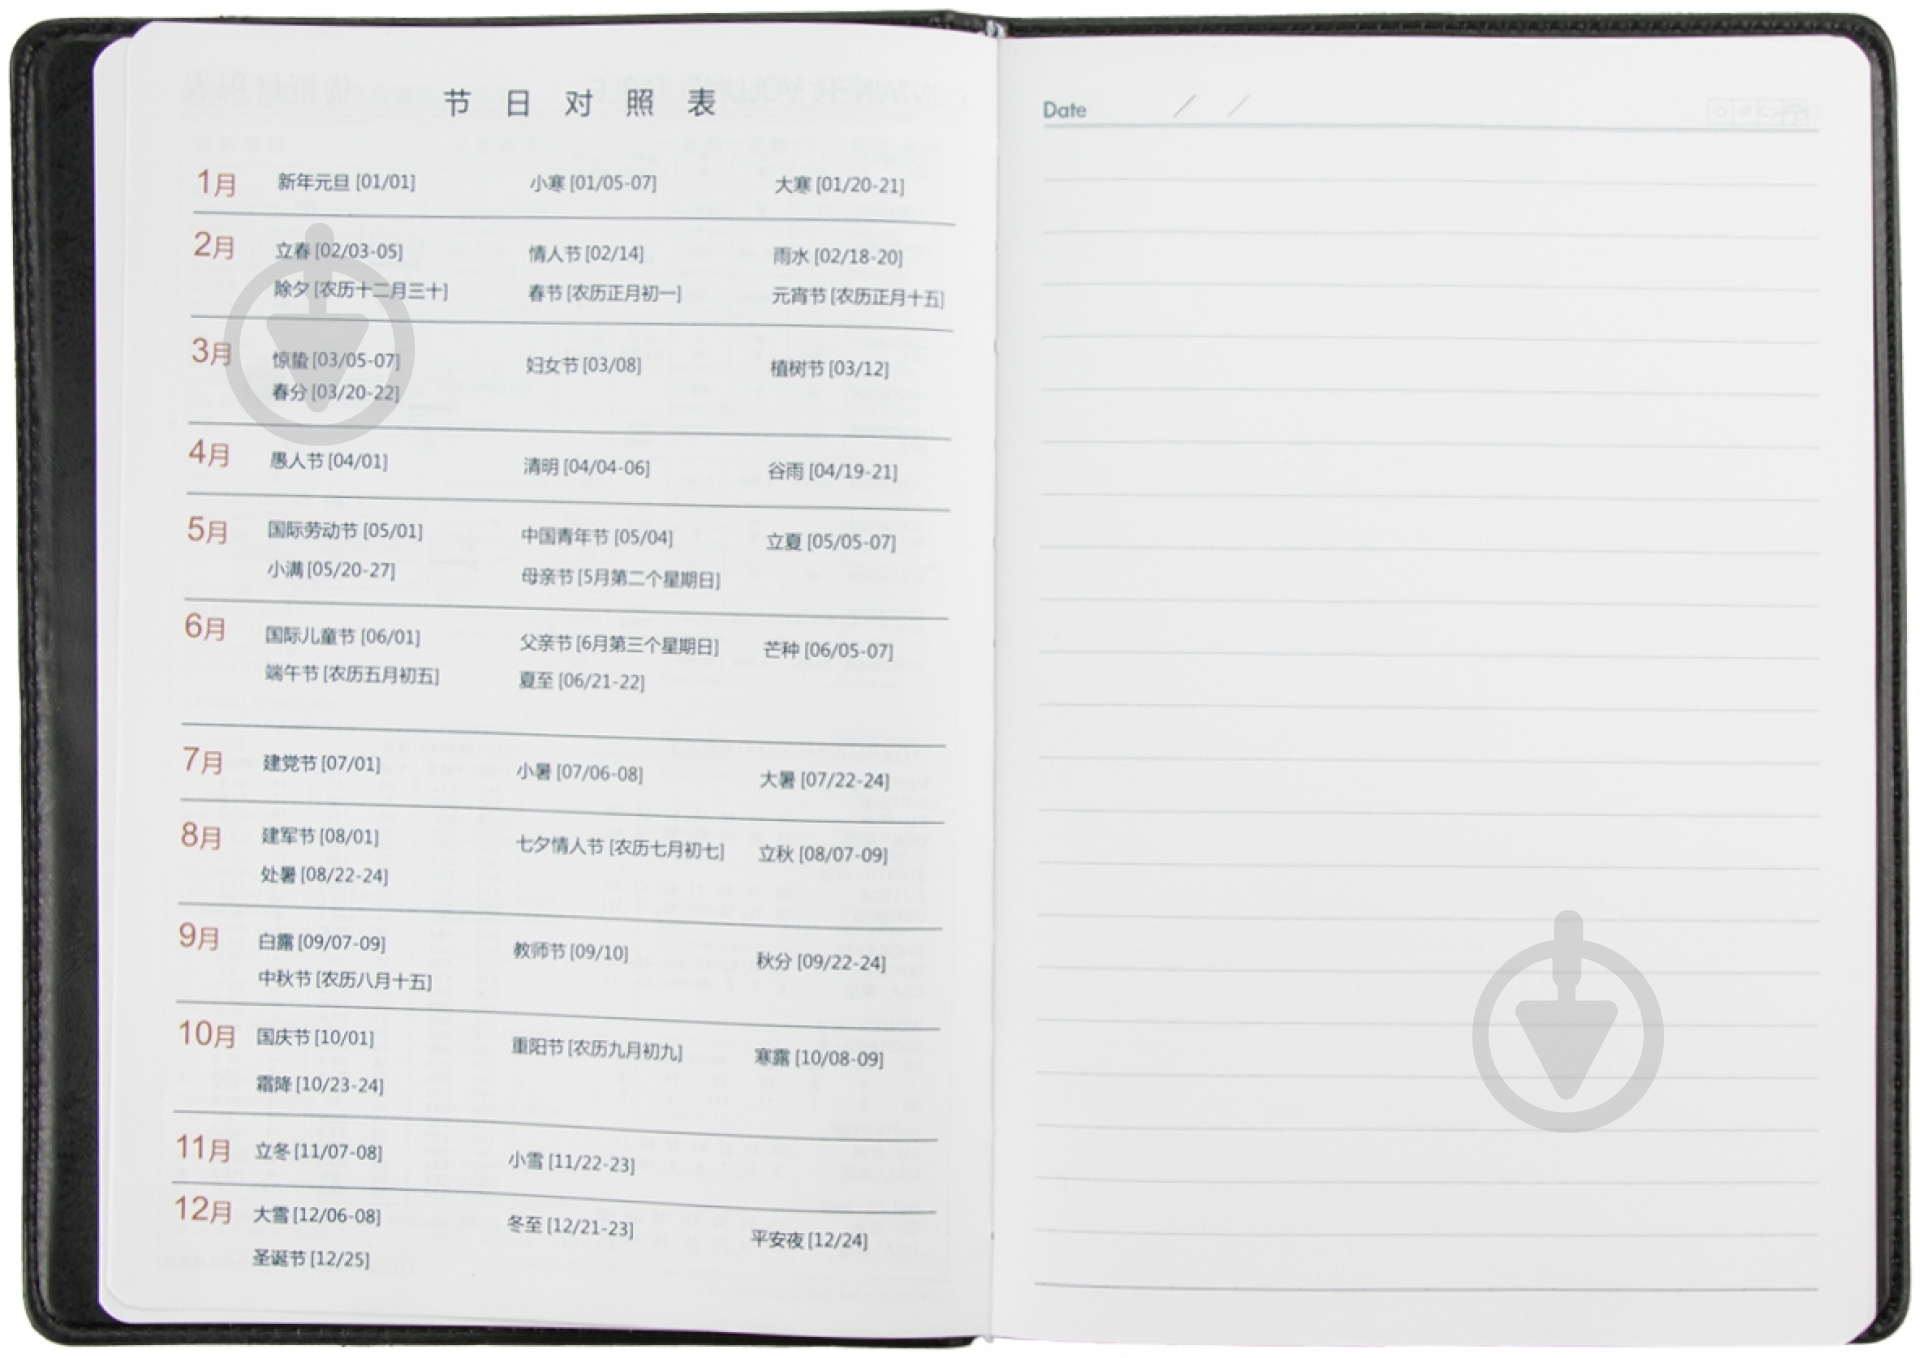 节日对照表
1月 新年元旦 [01/01] 小寒 [01/05-07] 大寒 [01/20-21]
2月 立春 [02/03-05] 情人节 [02/14] 雨水 [02/18-20]
除夕 [农历十二月三十] 春节 [农历正月初一] 元宵节 [农历正月十五]
3月 惊蛰 [03/05-07] 妇女节 [03/08] 植树节 [03/12]
春分 [03/20-22]
4月 愚人节 [04/01] 清明 [04/04-06] 谷雨 [04/19-21]
5月 国际劳动节 [05/01] 中国青年节 [05/04] 立夏 [05/05-07]
小满 [05/20-27] 母亲节 [5月第二个星期日]
6月 国际儿童节 [06/01] 父亲节 [6月第三个星期日] 芒种 [06/05-07]
端午节 [农历五月初五] 夏至 [06/21-22]
7月 建党节 [07/01] 小暑 [07/06-08] 大暑 [07/22-24]
8月 建军节 [08/01] 七夕情人节 [农历七月初七] 立秋 [08/07-09]
处暑 [08/22-24]
9月 白露 [09/07-09] 教师节 [09/10] 秋分 [09/22-24]
中秋节 [农历八月十五]
10月 国庆节 [10/01] 重阳节 [农历九月初九] 寒露 [10/08-09]
霜降 [10/23-24]
11月 立冬 [11/07-08] 小雪 [11/22-23]
12月 大雪 [12/06-08] 冬至 [12/21-23] 平安夜 [12/24]
圣诞节 [12/25]
Date / /